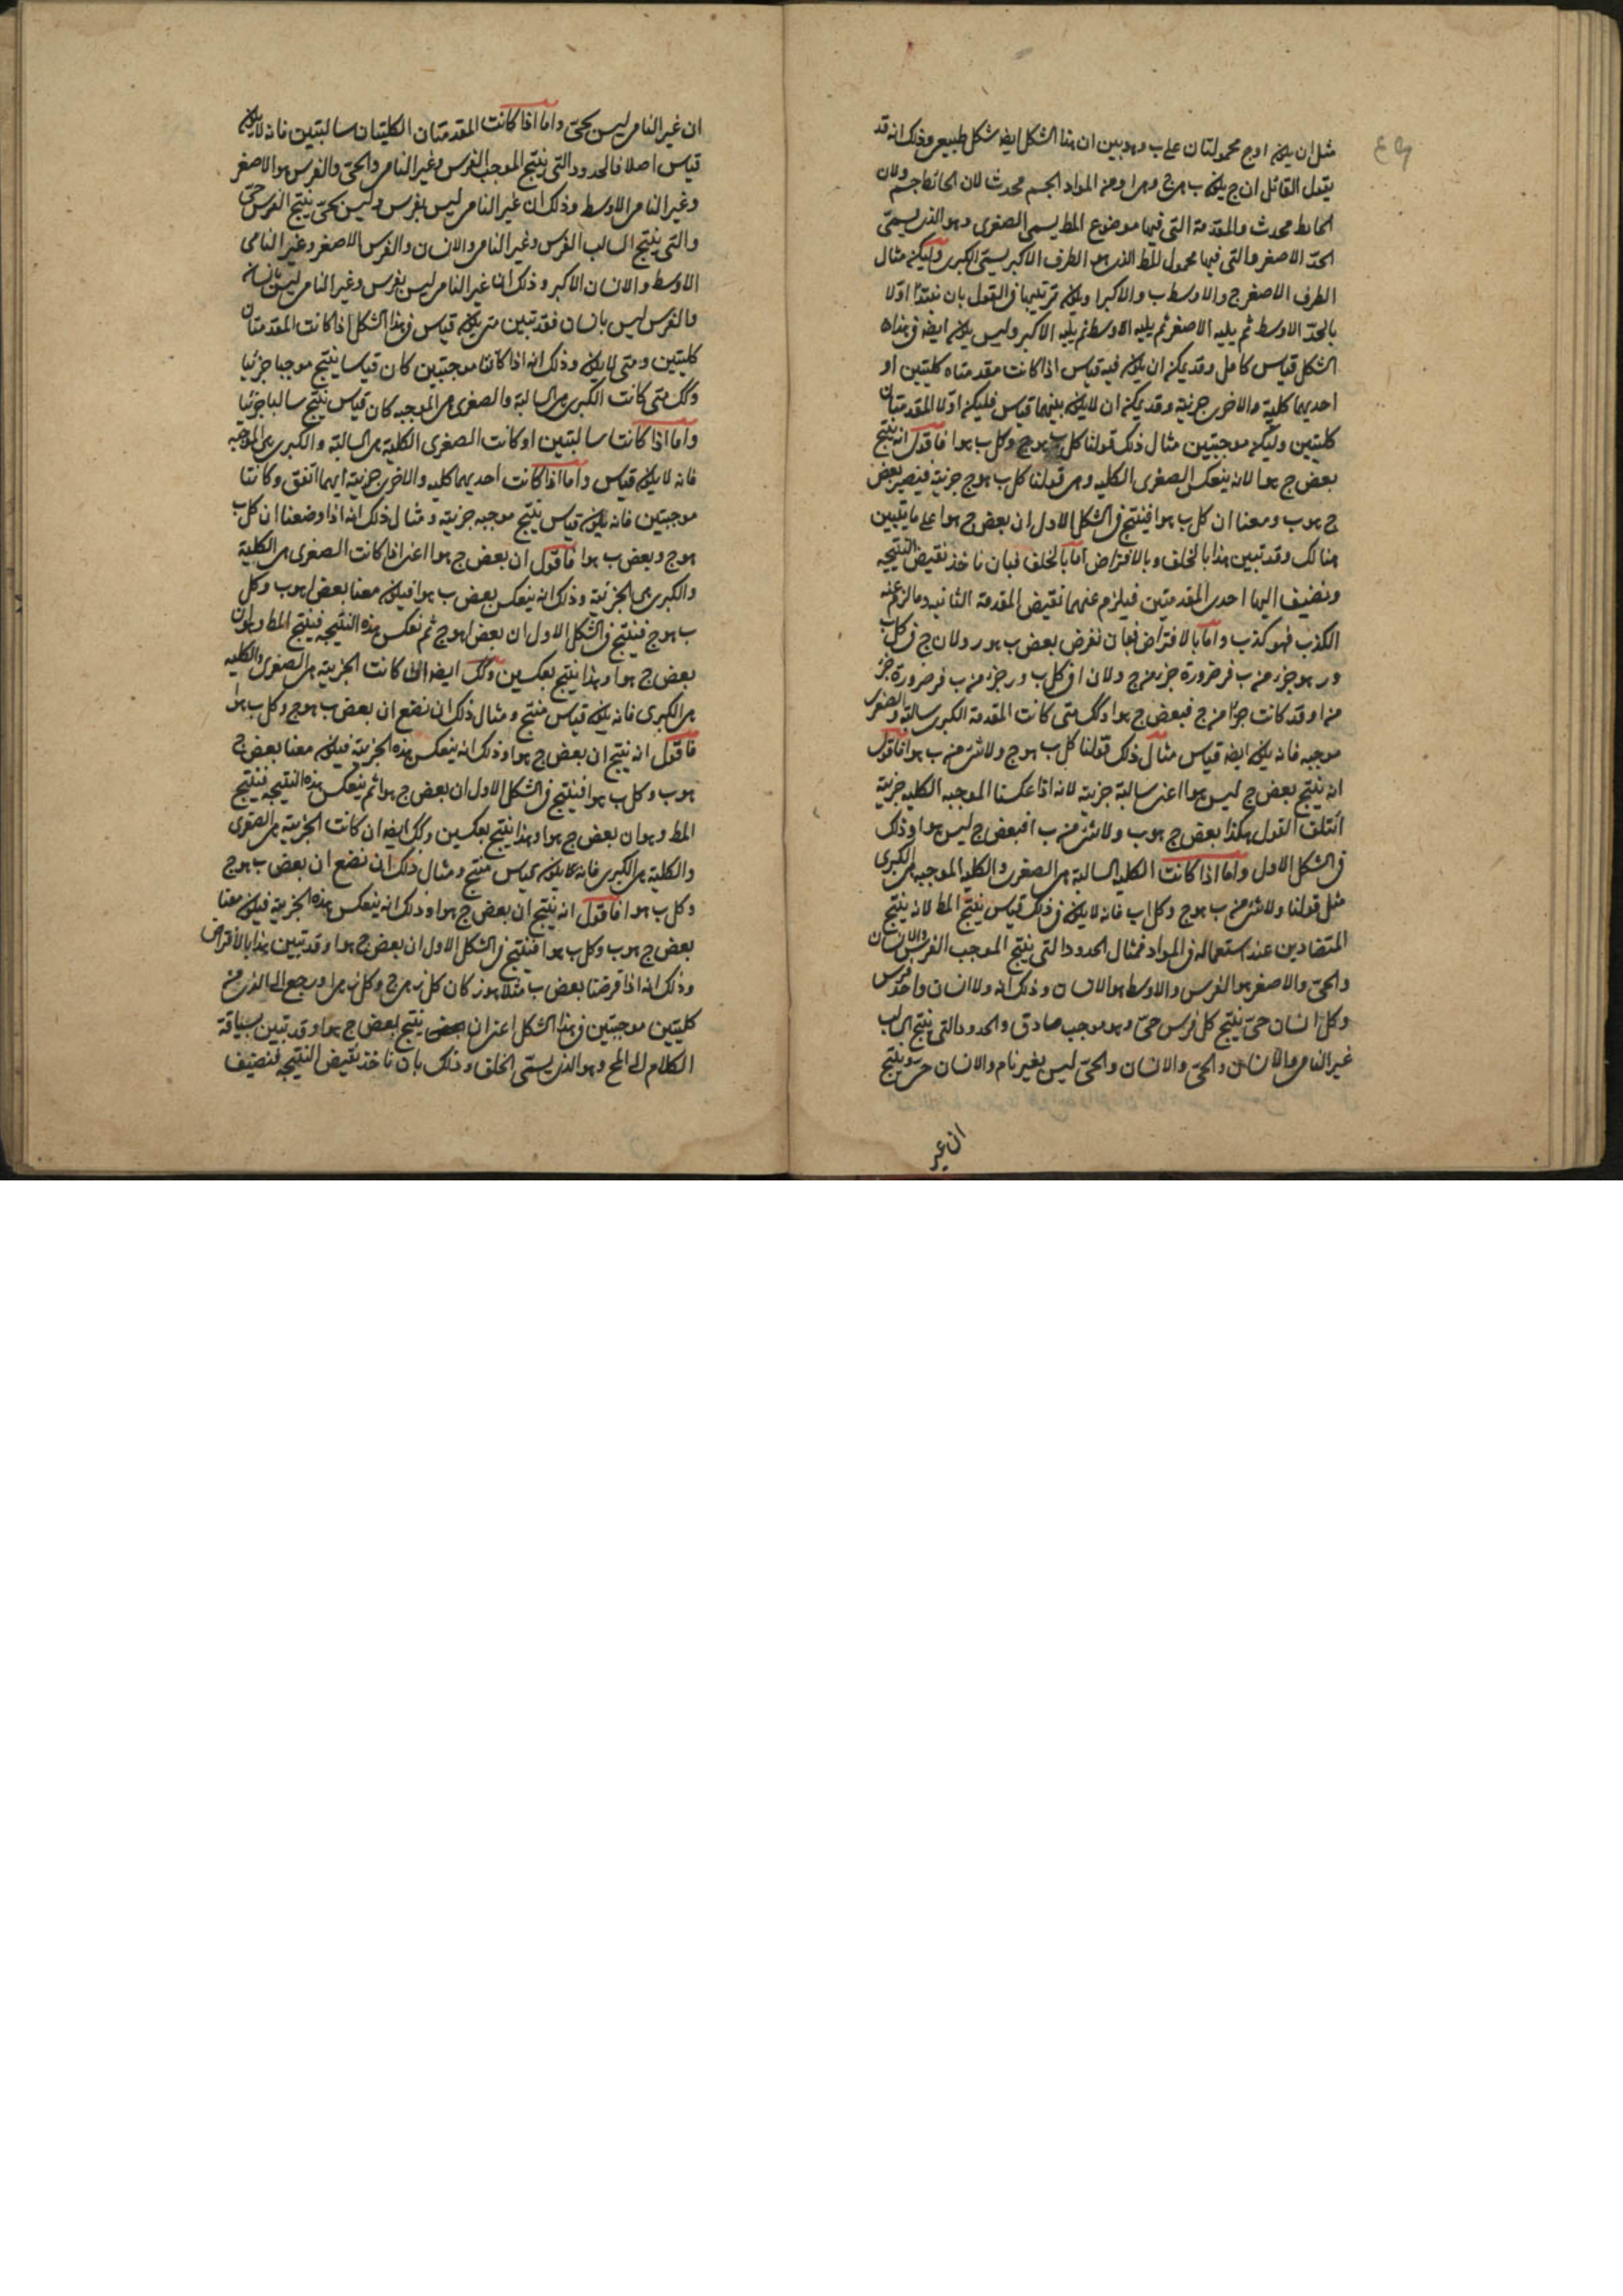 مثل ان يكون ا وج محمولتان على ب وهو بين ان هذا الشكل ايضا شكل طبيعى وذلك انه قد
يقول القائل ان ج يكون ا لان ب هى ج وهى ا ومن المواد الجسم محدث لان الحائط جسم ولان
الحائط محدث والمقدمة التى فيها موضوع المط يسمى الصغرى وهو الذى يسمى
الحدّ الاصغر والتى فيها محمول المط الذى هو الطرف الاكبر يسمى الكبرى وليكن مثال
الطرف الاصغر ج والاوسط ب والاكبر ا ويكون ترتيبها فى القول بان نبتدأ اولا
بالحدّ الاوسط ثم يليه الاصغر ثم يليه الاوسط ثم يليه الاكبر وليس يكون ايضا فى هذا
الشكل قياس كامل وقد يمكن ان يكون فيه قياس اذا كانت مقدمتاه كليتين او
احديهما كلية والاخرى جزئية وقد يمكن ان لا يكون بينهما قياس فليكن اولا المقدمتان
كليتين وليكن موجبتين مثال ذلك قولنا كل ب هو ج وكل ب هو ا فاقول انه ينتج
بعض ج هو ا لانه ينعكس الصغرى الكليه وهى قولنا كل ب هو ج جزئية فيصير بعض
ج هو ب ومعنا ان كل ب هو ا فينتج فى الشكل الاول ان بعض ج هو ا على ما يتبين
هنالك وقد تبين هذا بالخلف وبالافتراض اما بالخلف فبان ناخذ نقيض النتيجه
ونضيف اليها احدى المقدمتين فيلزم عنهما نقيض المقدمة الثانيه وما لزم عنه
الكذب فهو كذب واما بالافتراض فبان نفرض بعض ب هو ر ولان ج فى كل ب
ور هو جزء من ب فر ضرورة جزء من ج ولان ا فى كل ب ور جزء من ب فر ضرورة جزء
من ا وقد كانت جزءا من ج فبعض ج هو ا وكك متى كانت المقدمة الكبرى سالبة والصغرى
موجبه فانه يكون ايضا قياس مثال ذلك قولنا كل ب هو ج ولا شئ من ب هو ا فاقول
انه ينتج بعض ج ليس هو ا اعنى سالبة جزئية لانه اذا عكسنا الموجبه الكليه جزئية
ائتلف القول هكذا بعض ج هو ب ولا شئ من ب ا فبعض ج ليس هو ا وذلك
فى الشكل الاول واما اذا كانت الكلية السالبة هى الصغرى والكليه الموجبه هى الكبرى
مثل قولنا ولا شئ من ب هو ج وكل ب ا فانه لا يكون فى ذلك قياس ينتج المط لانه ينتج
المتضادين عند استعماله فى المواد فمثال الحدود التى ينتج الموجب الفرس والانسان
والحىّ والاصغر هو الفرس والاوسط هو الانسان وذلك انه ولا انسان واحد فرس
وكل انسان حىّ ينتج كل فرس حىّ وهو موجب صادق والحدود التى ينتج السالب
غير النامى والانسان والحىّ والانسان والحىّ ليس بغير نام والانسان حىّ وينتج
ان غير
ان غير النامى ليس بحىّ واما اذا كانت المقدمتان الكليتان سالبتين فانه لا يكون
قياس اصلا فالحدود التى ينتج الموجب الفرس وغير النامى والحىّ والفرس هو الاصغر
وغير النامى الاوسط وذلك ان غير النامى ليس بفرس وليس بحىّ ينتج الفرس حىّ
والتى ينتج السالب الفرس وغير النامى والانسان والفرس الاصغر وغير النامى
الاوسط والانسان الاكبر وذلك ان غير النامى ليس بفرس وغير النامى ليس بانسان
والفرس ليس بانسان فقد تبين متى يكون قياس فى هذا الشكل اذا كانت المقدمتان
كليتين ومتى لا يكون وذلك انه اذا كانتا موجبتين كان قياسا ينتج موجبا جزئيا
وكك متى كانت الكبرى هى السالبة والصغرى هى الموجبه كان قياس ينتج سالبا جزئيا
واما اذا كانت سالبتين او كانت الصغرى الكلية هى السالبة والكبرى هى الموجبه
فانه لا يكون قياس واما اذا كانت احديهما كليه والاخرى جزئية ايهما اتفق وكانتا
موجبتين فانه يكون قياس ينتج موجبه جزئية ومثال ذلك انه اذا وضعنا ان كل ب
هو ج وبعض ب هو ا فاقول ان بعض ج هو ا اعنى اذا كانت الصغرى هى الكلية
والكبرى هى الجزئية وذلك انه ينعكس بعض ب هو ا فيكون معنا بعض ا هو ب وكل
ب هو ج فينتج فى الشكل الاول ان بعض ا هو ج ثم نعكس هذه النتيجه فينتج المط وهو ان
بعض ج هو ا وهذا ينتج بعكسين وكك ايضا ان كانت الجزئية هى الصغرى والكليه
هى الكبرى فانه يكون قياس منتج ومثال ذلك ان نضع ان بعض ب هو ج وكل ب هو ا
فاقول انه ينتج ان بعض ج هو ا وذلك انه ينعكس هذه الجزئية فيكون معنا بعض ج
هو ب وكل ب هو ا فينتج فى الشكل الاول ان بعض ج هو ا ثم ينعكس هذه النتيجه فينتج
المط وهو ان بعض ج هو ا وهذا ينتج بعكسين وكك ايضا ان كانت الجزئية هى الصغرى
والكلية هى الكبرى فانه يكون قياس منتج ومثال ذلك ان نضع ان بعض ب هو ج
وكل ب هو ا فاقول انه ينتج ان بعض ج هو ا وذلك انه ينعكس هذه الجزئية فيكون معنا
بعض ج هو ب وكل ب هو ا فينتج فى الشكل الاول ان بعض ج هو ا وقد تبين هذا بالافتراض
وذلك انه اذا فرضنا بعض ب مثلا هو ز كان كل ز هى ج وكل ز هى ا ورجع الى الذى من
كليتين موجبتين فى هذا الشكل اعنى ان ينتج بعض ج هو ا وقد تبين بسياقة
الكلام الى المح وهو الذى يسمى الخلف وذلك بان ناخذ نقيض النتيجه فنضيف